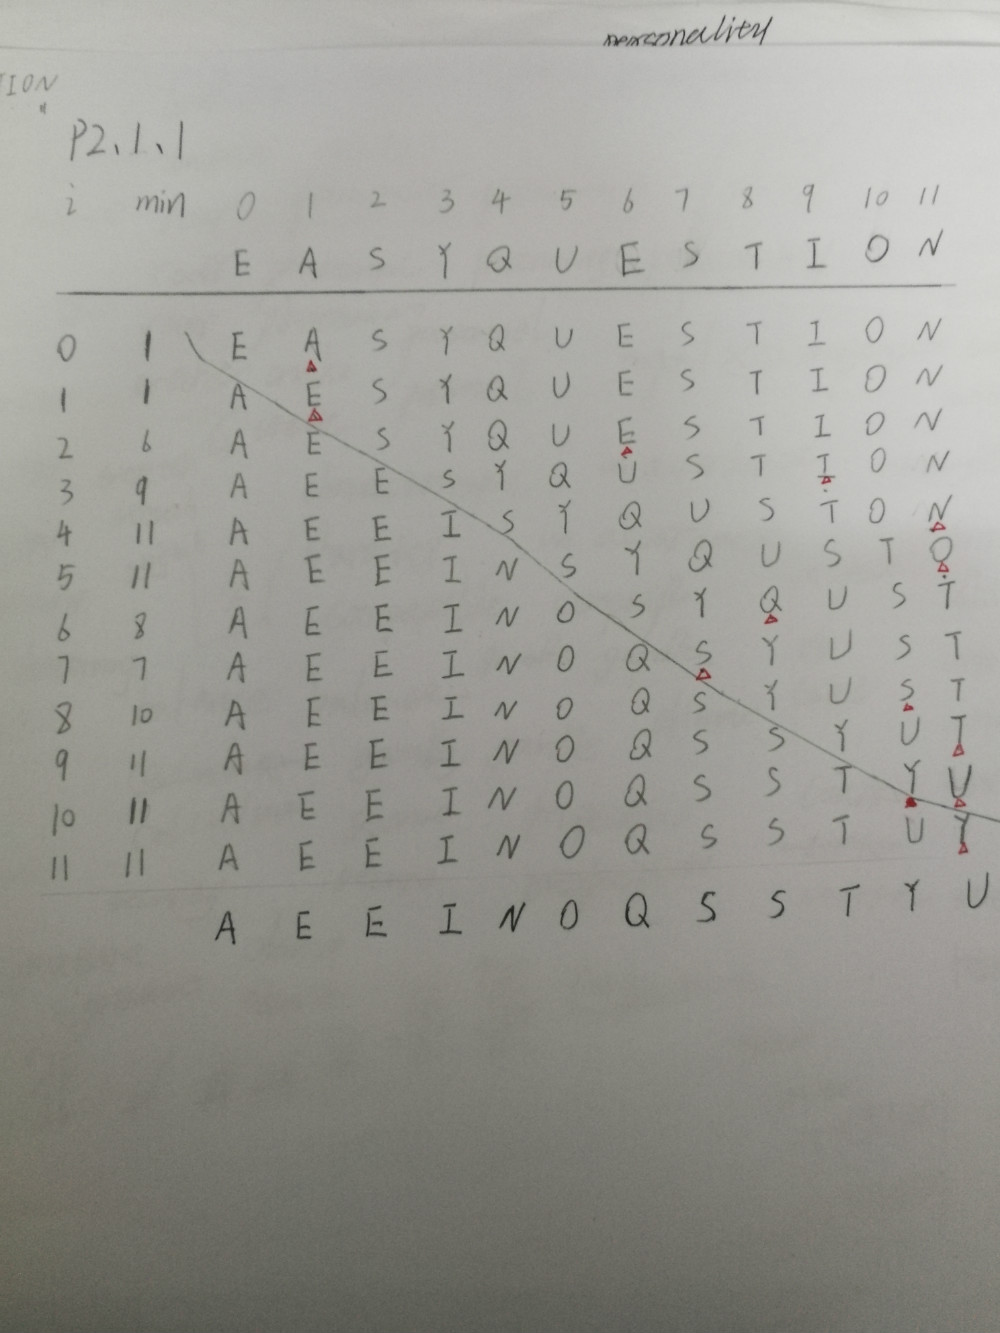 personality
TION
"
P2.1.1
i min 0 1 2 3 4 5 6 7 8 9 10 11
E A S Y Q U E S T I O N
0 1 E A S Y Q U E S T I O N
1 1 A E S Y Q U E S T I O N
2 6 A E S Y Q U E S T I O N
3 9 A E E S Y Q U S T I O N
4 11 A E E I S Y Q U S T O N
5 11 A E E I N S Y Q U S T O
6 8 A E E I N O S Y Q U S T
7 7 A E E I N O Q S Y U S T
8 10 A E E I N O Q S Y U S T
9 11 A E E I N O Q S S Y U T
10 11 A E E I N O Q S S T Y U
11 11 A E E I N O Q S S T U Y
A E E I N O Q S S T Y U